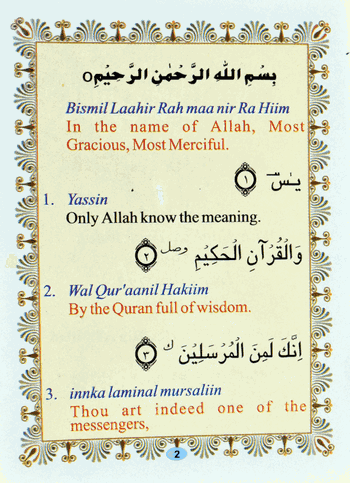 بِسْمِ اللهِ الرَّحْمٰنِ الرَّحِيْمِ○
Bismil Laahir Rah maa nir Ra Hiim
In the name of Allah, Most
Gracious, Most Merciful.
يٰسٓ ۝١
1. Yassin
Only Allah know the meaning.
وَالْقُرْآنِ الْحَكِيْمِ وصل ۝٢
2. Wal Qur'aanil Hakiim
By the Quran full of wisdom.
اِنَّكَ لَمِنَ الْمُرْسَلِيْنَ ك ۝٣
3. innka laminal mursaliin
Thou art indeed one of the
messengers,
2